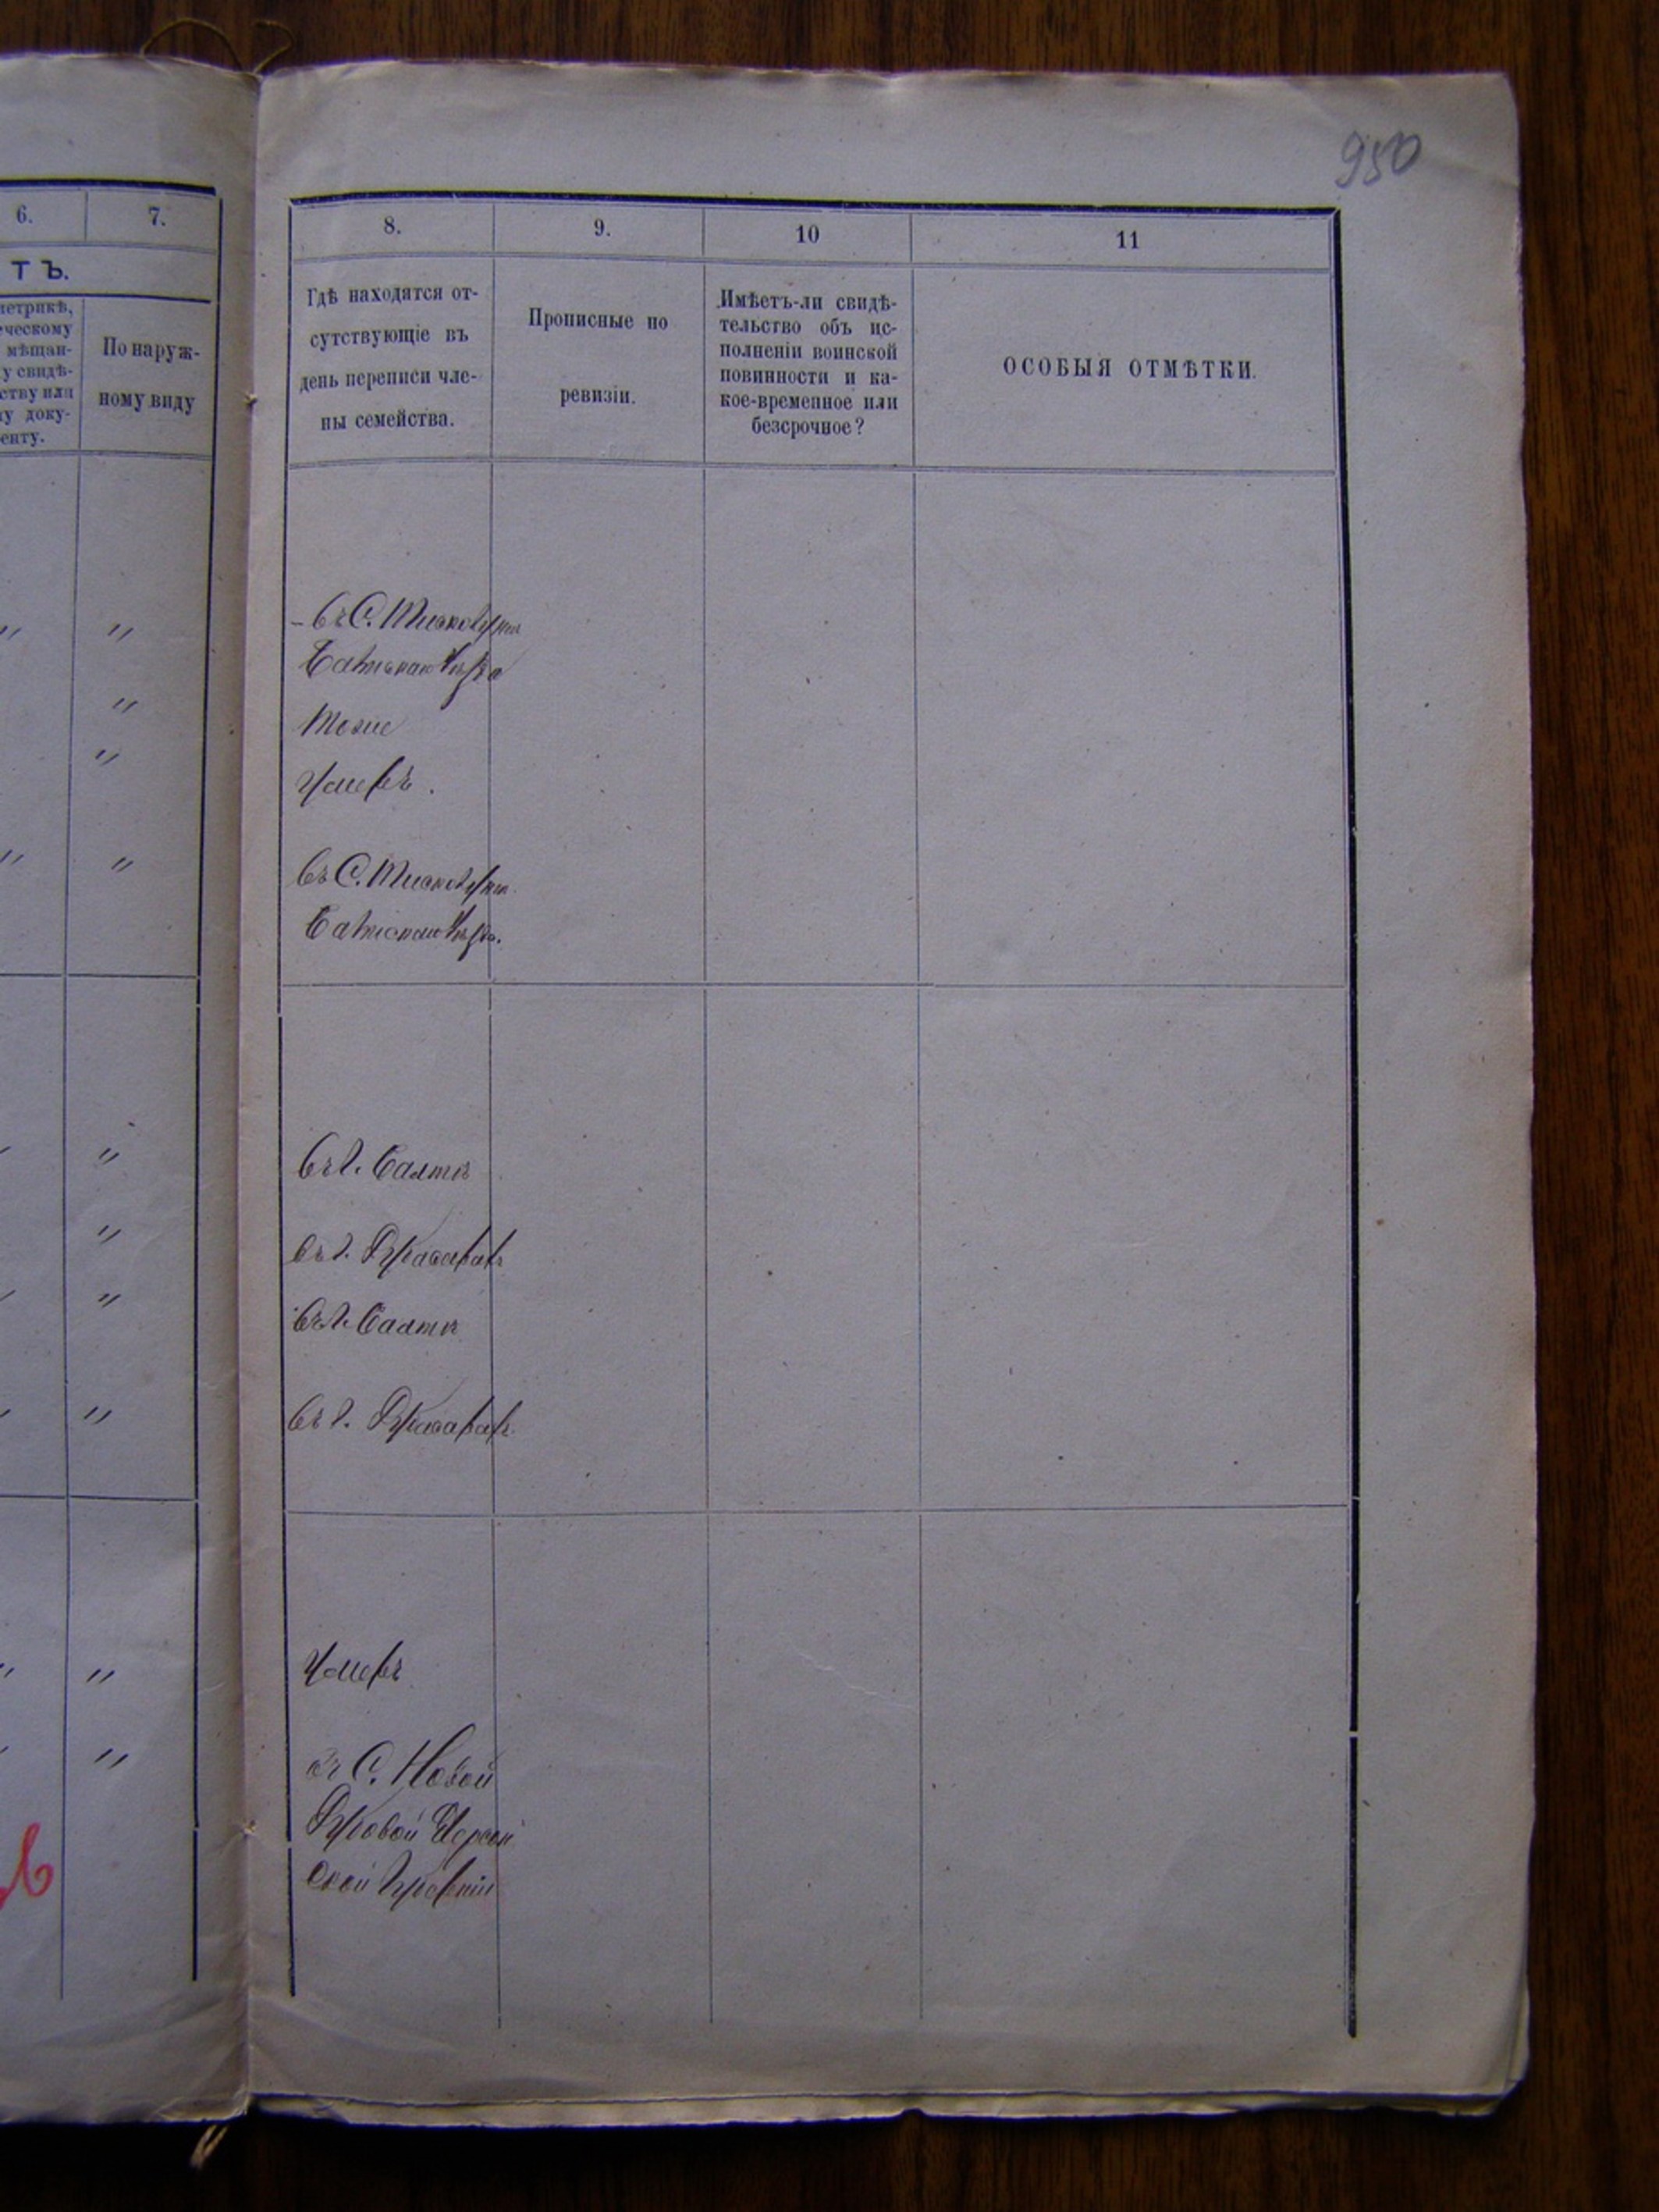 950
6.
7.
ТЪ.
метрикѣ,
ческому
мѣщан-
у свидѣ-
ству или
у доку-
енту.
По наруж-
ному виду
8.
9.
10
11
Гдѣ находятся от-
сутствующіе въ
день переписи чле-
ны семейства.
Прописные по
ревизіи.
Имѣетъ-ли свидѣ-
тельство объ ис-
полненіи воинской
повинности и ка-
кое-временное или
безсрочное?
ОСОБЫЯ ОТМѢТКИ.
въ С.
Тоже
Умеръ.
въ С.
въ г. Балтѣ
въ г.
въ г. Балтѣ
въ г.
Умеръ
въ С. Новой
Херсон
ской Губерніи
"
"
"
"
"
"
"
"
"
"
"
"